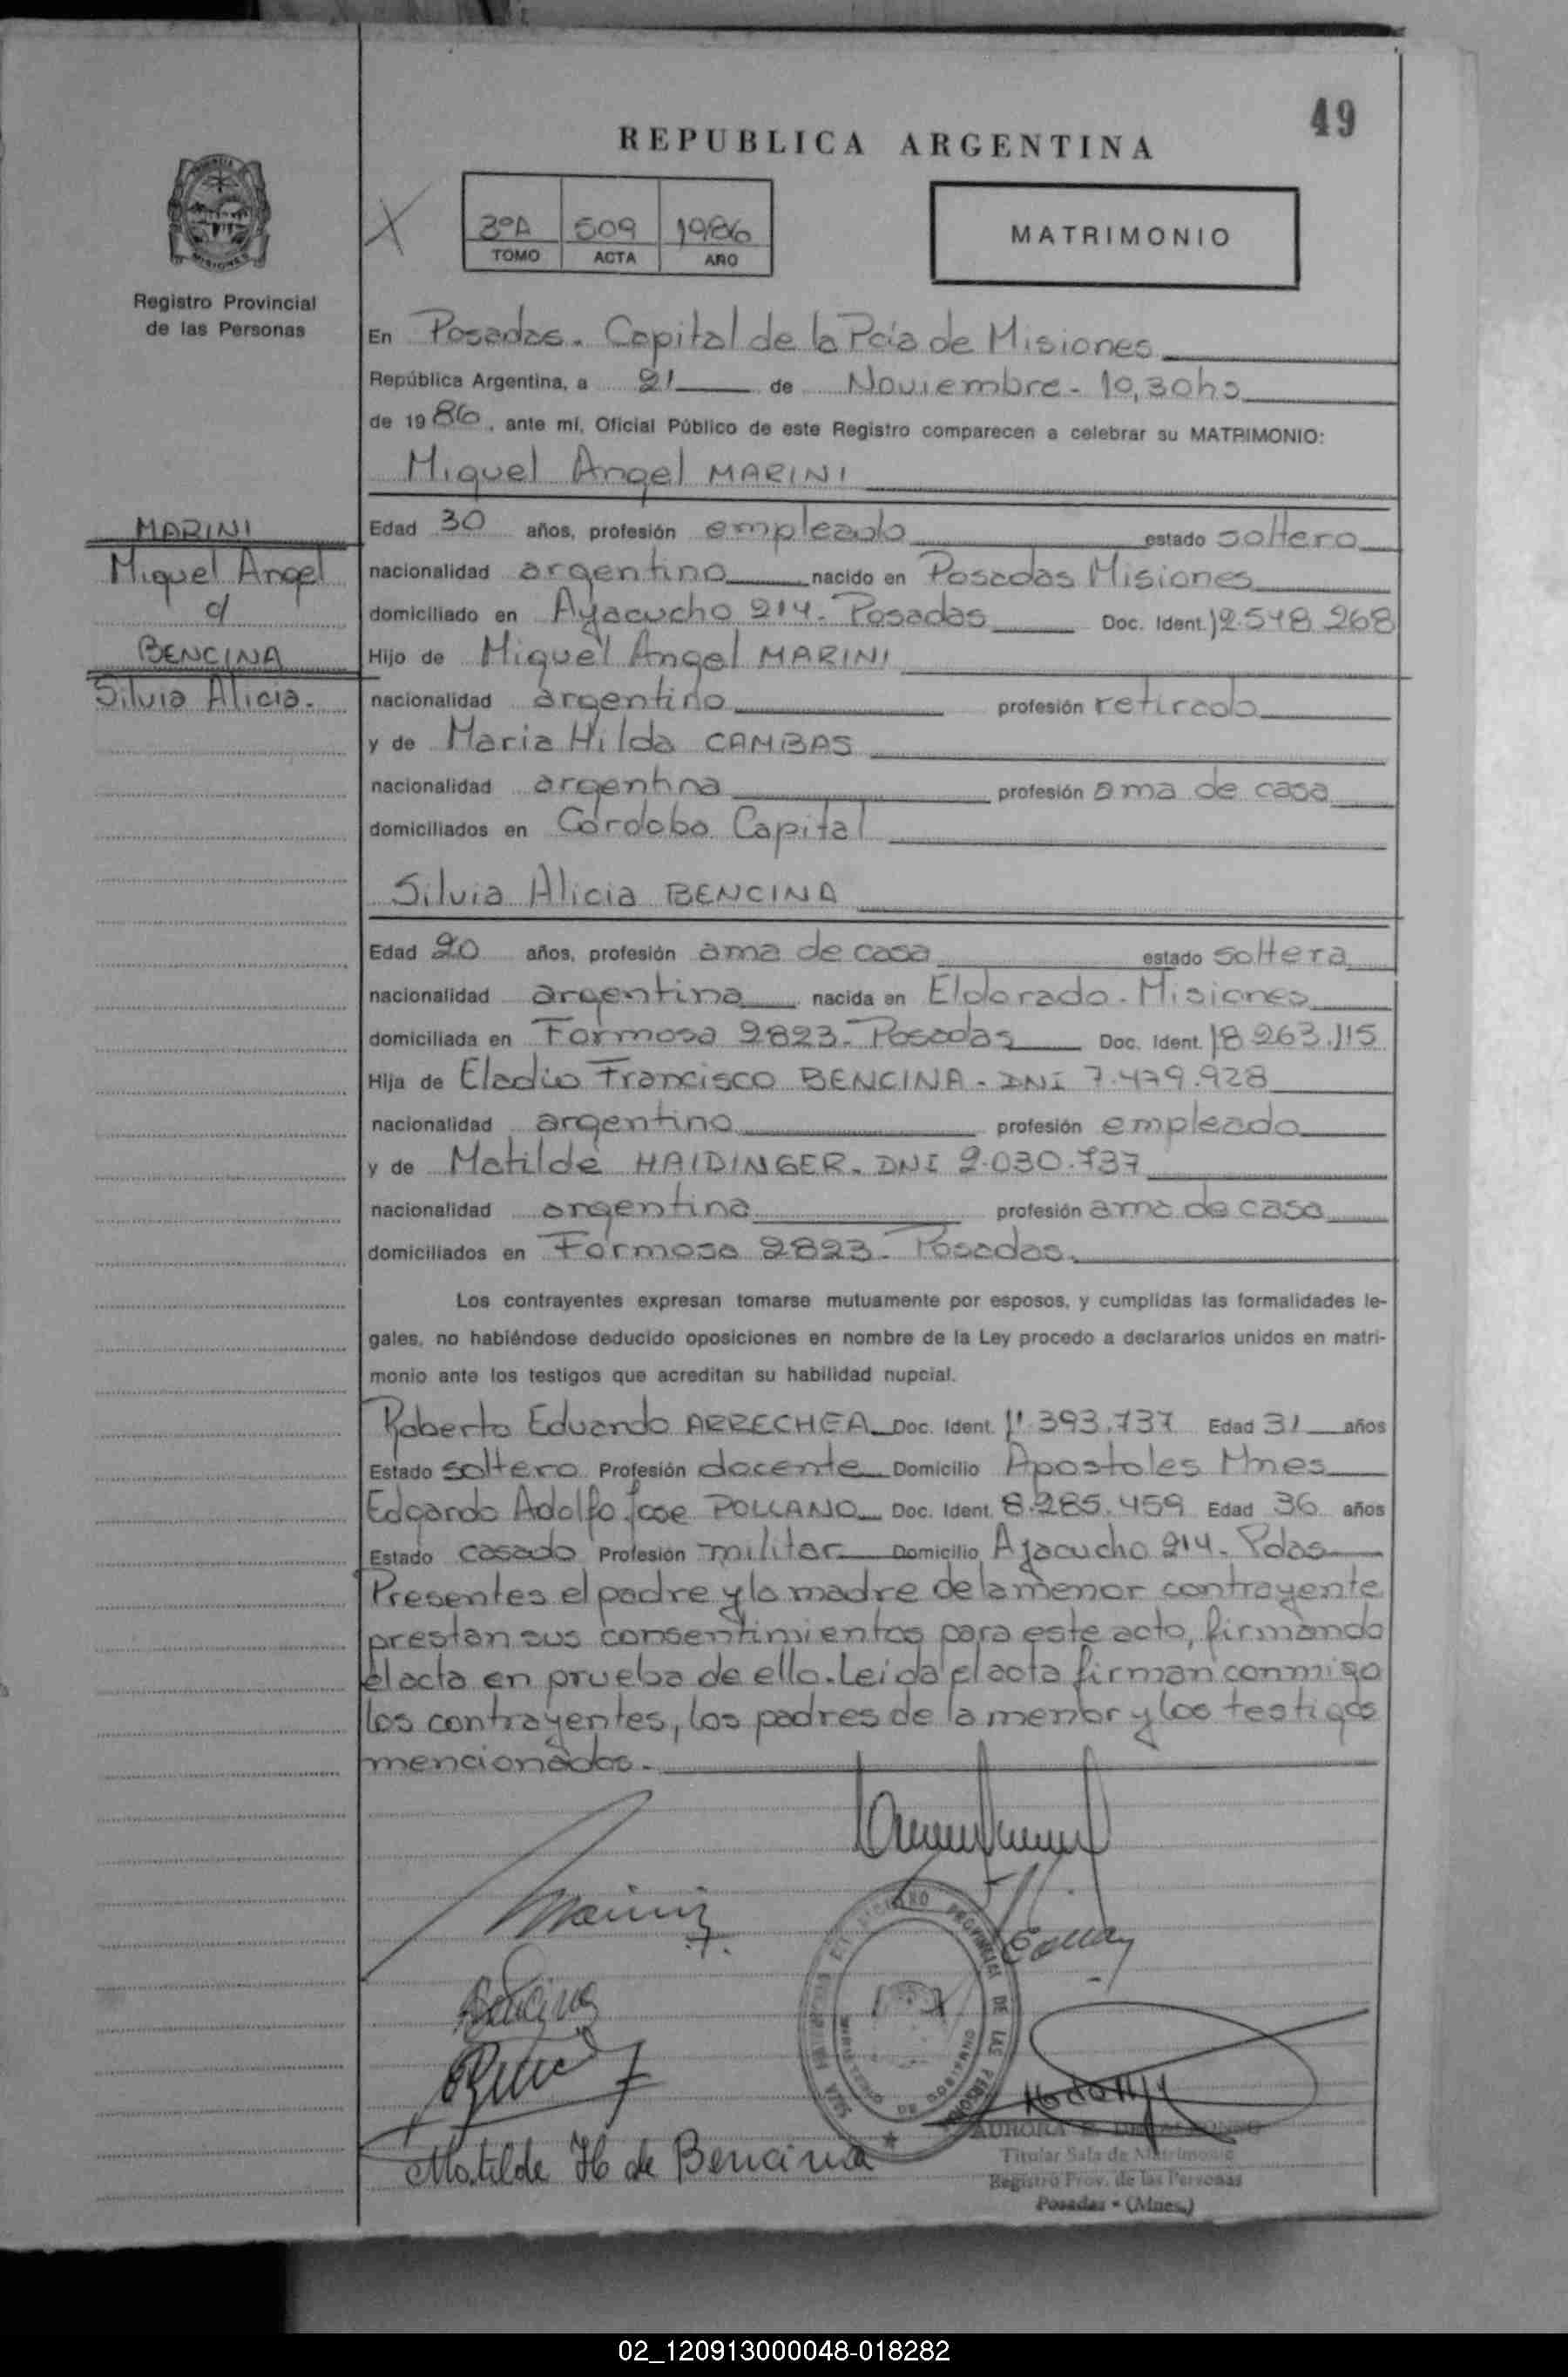 49
REPUBLICA ARGENTINA
3ºA 509 1986
TOMO ACTA AÑO
MATRIMONIO
MISIONES
Registro Provincial
de las Personas
En Posadas. Capital de la Pcia de Misiones
República Argentina, a 21 de Noviembre - 10,30hs
de 1986, ante mí, Oficial Público de este Registro comparecen a celebrar su MATRIMONIO:
Miguel Angel MARINI
MARINI
Miguel Angel
c/
BENCINA
Silvia Alicia.
Edad 30 años, profesión empleado estado soltero
nacionalidad argentino nacido en Posadas Misiones
domiciliado en Ayacucho 214. Posadas Doc. Ident. 12.548.268
Hijo de Miguel Angel MARINI
nacionalidad argentino profesión retirado
y de Maria Hilda CAMBAS
nacionalidad argentina profesión ama de casa
domiciliados en Córdoba Capital
Silvia Alicia BENCINA
Edad 20 años, profesión ama de casa estado soltera
nacionalidad argentina nacida en Eldorado. Misiones
domiciliada en Formosa 2823. Posadas Doc. Ident. 18.263.115
Hija de Eladio Francisco BENCINA - DNI 7.479.928
nacionalidad argentino profesión empleado
y de Matilde HAIDINGER - DNI 2.030.737
nacionalidad argentina profesión ama de casa
domiciliados en Formosa 2823 - Posadas.
Los contrayentes expresan tomarse mutuamente por esposos, y cumplidas las formalidades le-
gales, no habiéndose deducido oposiciones en nombre de la Ley procedo a declararlos unidos en matri-
monio ante los testigos que acreditan su habilidad nupcial.
Roberto Eduardo ARRECHEA Doc. Ident. 11.393.737 Edad 31 años
Estado soltero Profesión docente Domicilio Apostoles Mnes
Edgardo Adolfo Jose POLLANO Doc. Ident. 8.285.459 Edad 36 años
Estado casado Profesión militar Domicilio Ayacucho 214 - Pdas
Presentes el padre y la madre de la menor contrayente
prestan sus consentimientos para este acto, firmando
el acta en prueba de ello. Leida el acta firman conmigo
los contrayentes, los padres de la menor y los testigos
mencionados.
Marini
Bencina
Matilde H de Bencina
PROVINCIAL DE LAS PERSONAS
AURORA
Titular Sala de Matrimonio
Registro Prov. de las Personas
Posadas - (Mnes.)
02_120913000048-018282